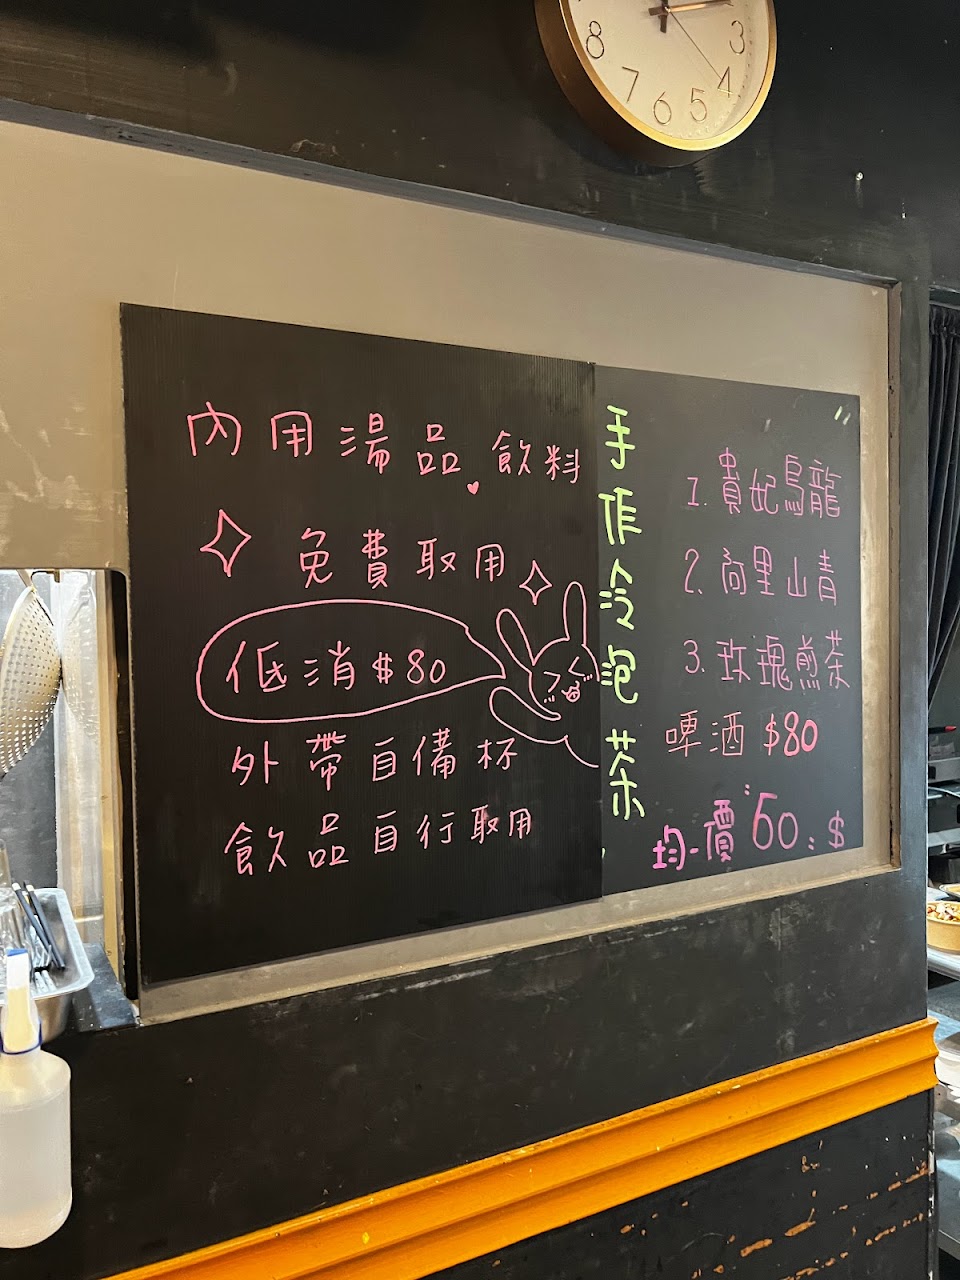 8
7
6
5
4
3
內用湯品飲料
免費取用
低消$80
外帶自備杯
飲品自行取用
手作冷泡茶
1. 貴妃烏龍
2. 尚里山青
3. 玫瑰煎茶
啤酒 $80
均一價 60:$